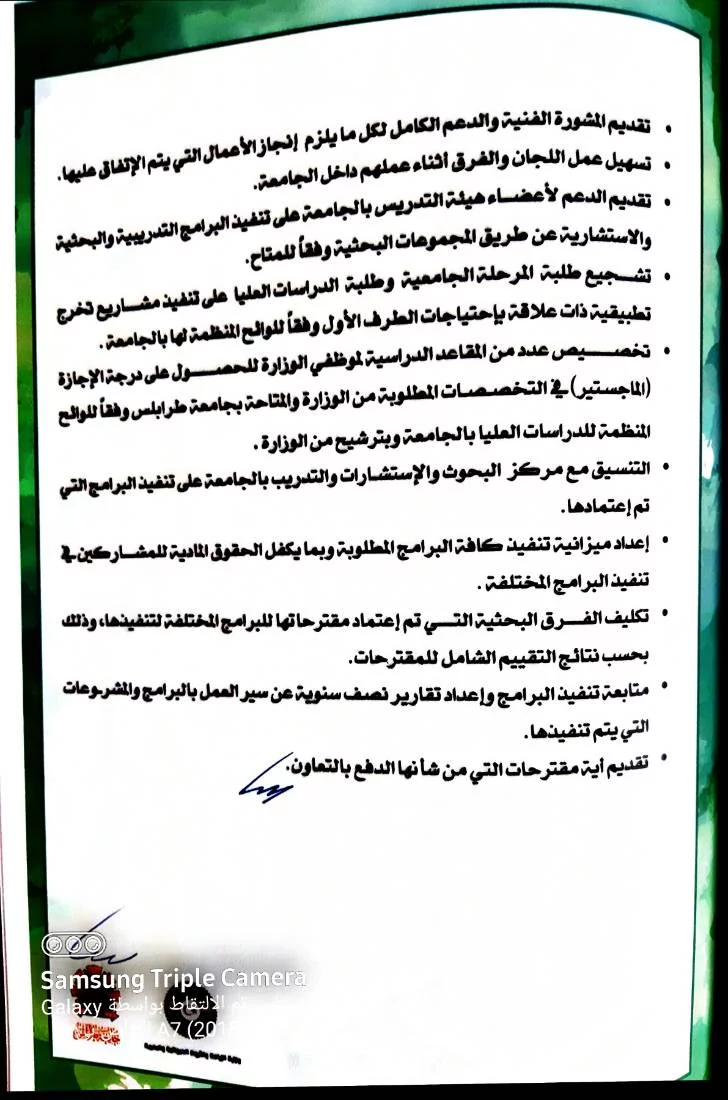 • تقديم المشورة الفنية والدعم الكامل لكل ما يلزم إنجاز الأعمال التي يتم الإتفاق عليها.
• تسهيل عمل اللجان والفرق أثناء عملهم داخل الجامعة.
• تقديم الدعم لأعضاء هيئة التدريس بالجامعة على تنفيذ البرامج التدريبية والبحثية
والاستشارية عن طريق المجموعات البحثية وفقاً للمتاح.
• تشجيع طلبة المرحلة الجامعية وطلبة الدراسات العليا على تنفيذ مشاريع تخرج
تطبيقية ذات علاقة بإحتياجات الطرف الأول وفقاً للوائح المنظمة لها بالجامعة.
• تخصيص عدد من المقاعد الدراسية لموظفي الوزارة للحصول على درجة الإجازة
(الماجستير) في التخصصات المطلوبة من الوزارة والمتاحة بجامعة طرابلس وفقاً للوائح
المنظمة للدراسات العليا بالجامعة وبترشيح من الوزارة.
• التنسيق مع مركز البحوث والإستشارات والتدريب بالجامعة على تنفيذ البرامج التي
تم إعتمادها.
• إعداد ميزانية تنفيذ كافة البرامج المطلوبة وبما يكفل الحقوق المادية للمشاركين في
تنفيذ البرامج المختلفة.
• تكليف الفرق البحثية التي تم إعتماد مقترحاتها للبرامج المختلفة لتنفيذها، وذلك
بحسب نتائج التقييم الشامل للمقترحات.
• متابعة تنفيذ البرامج وإعداد تقارير نصف سنوية عن سير العمل بالبرامج والمشروعات
التي يتم تنفيذها.
• تقديم أية مقترحات التي من شأنها الدفع بالتعاون.
Samsung Triple Camera
تم الالتقاط بواسطة Galaxy
A7 (2018